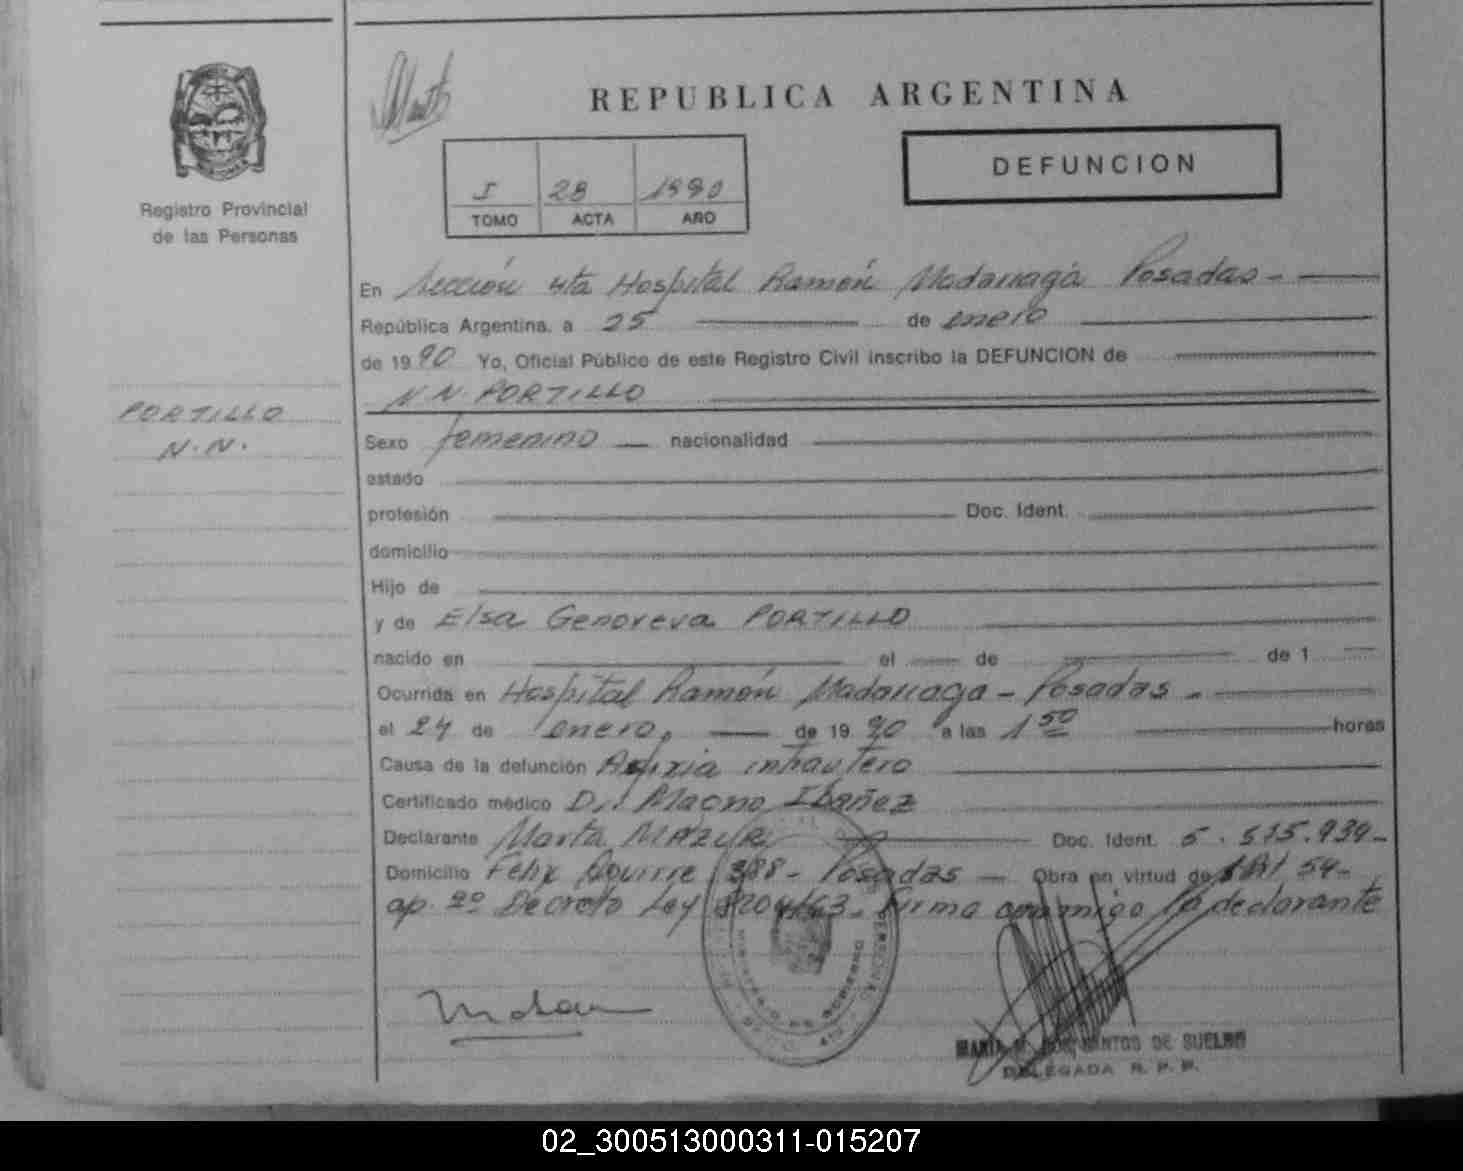 REPUBLICA ARGENTINA
DEFUNCION
I 28 1990
TOMO ACTA AÑO
Registro Provincial
de las Personas
En Sección 4ta Hospital Ramón Madariaga Posadas
República Argentina, a 25 de enero
de 1990 Yo, Oficial Público de este Registro Civil inscribo la DEFUNCION de
N N PORTILLO
PORTILLO
N. N.
Sexo femenino nacionalidad
estado
profesión Doc. Ident.
domicilio
Hijo de
y de Elsa Genoveva PORTILLO
nacido en el de de 1
Ocurrida en Hospital Ramón Madariaga - Posadas -
el 24 de enero, de 1990 a las 1 50 horas
Causa de la defunción Asfixia intrautero
Certificado médico Dr. Magno Ibañez
Declarante Marta MAZUR Doc. Ident. 5.515.939-
Domicilio Felix Aguirre 388 - Posadas - Obra en virtud de Art 54-
ap. 2º Decreto Ley 8204/63. Firma conmigo la declarante
MINISTERIO DE GOBIERNO
MARIA DOS SANTOS DE SUELDO
DELEGADA R. P. P.
02_300513000311-015207